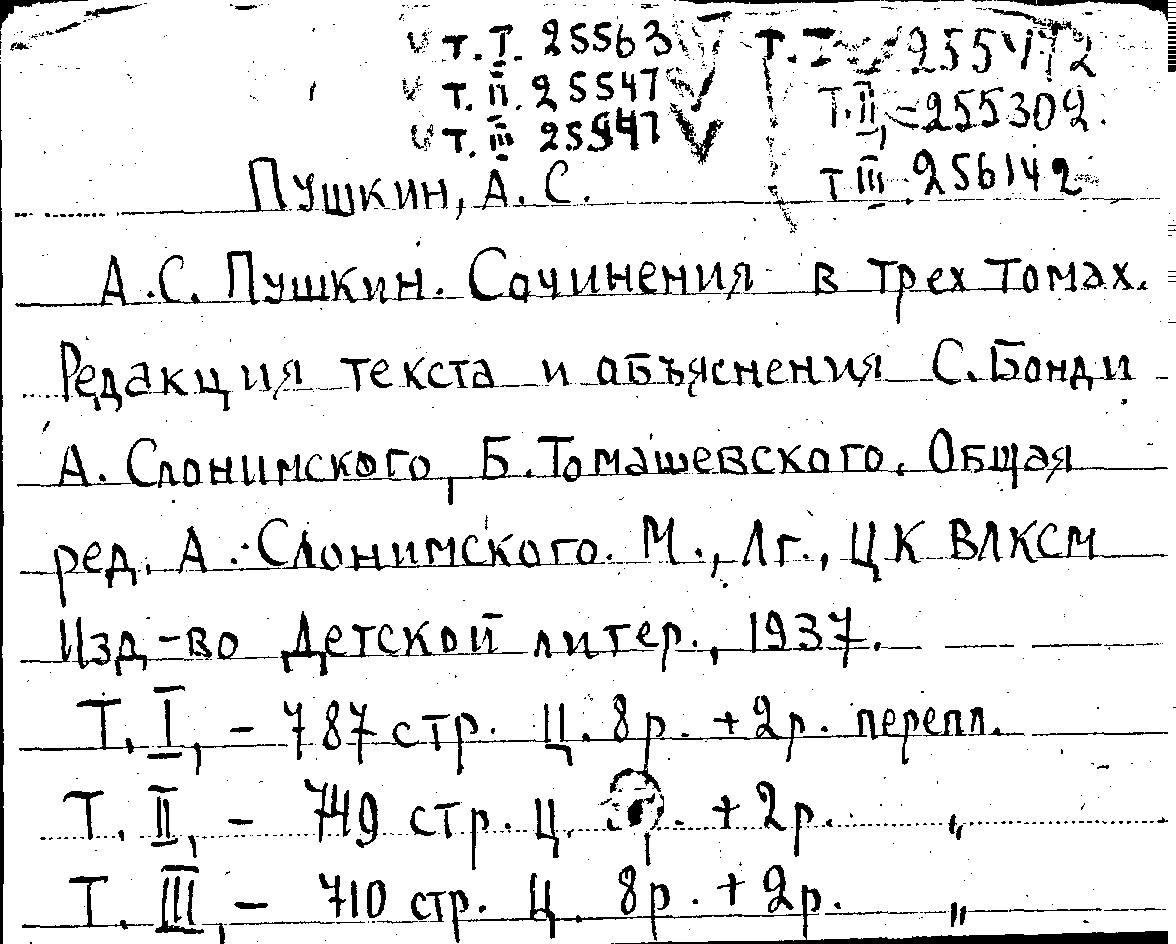 т. I. 25563 Т. I 255472
т. II. 25547 Т. II, = 255302.
т. III 25547 Т III 256142
Пушкин, А. С.
А.С. Пушкин. Сочинения в трех томах.
Редакция текста и объяснения С. Бонди
А. Слонимского, Б. Томашевского. Общая
ред. А. Слонимского. М., Лг., ЦК ВЛКСМ
Изд-во Детской литер., 1937.
Т. I, - 787 стр. Ц. 8 р. + 2 р. перепл.
Т. II, - 749 стр. Ц. р. + 2 р. "
Т. III, - 710 стр. Ц. 8 р. + 2 р. "